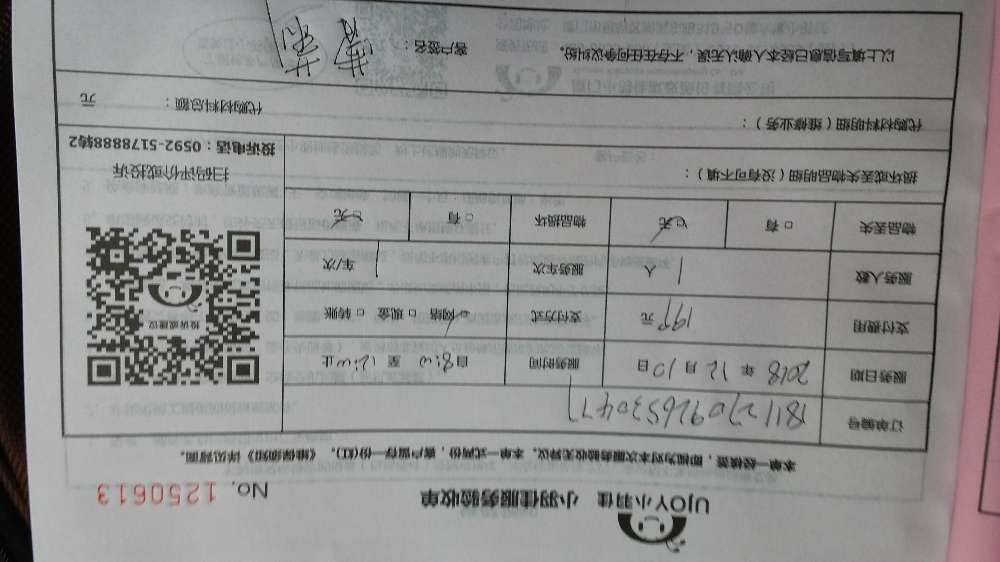 UJOY小羽佳 小羽佳服务验收单 No. 1250613
本单一经核签，即视为对本次服务验收无异议。本单一式两份，客户留存一份(红)。《维保须知》详见背面。
订单编号 181127092653047
服务日期 2018 年 12 月 10 日 服务时间 自 8:00 至 12:00 止
支付费用 199 元 支付方式 网络 □ 现金 □ 转账
服务人数 1 人 服务车次 1 车/次
物品丢失 □ 有 无 物品损坏 □ 有 无
投诉或建议
损坏或丢失物品明细（没有可不填）：
扫码评价或投诉
投诉电话：0592-5178888转2
代购材料明细（维修业务）：
代购材料总额： 元
以上填写信息已经本人确认无误，不存在任何争议纠纷。 客户签名：